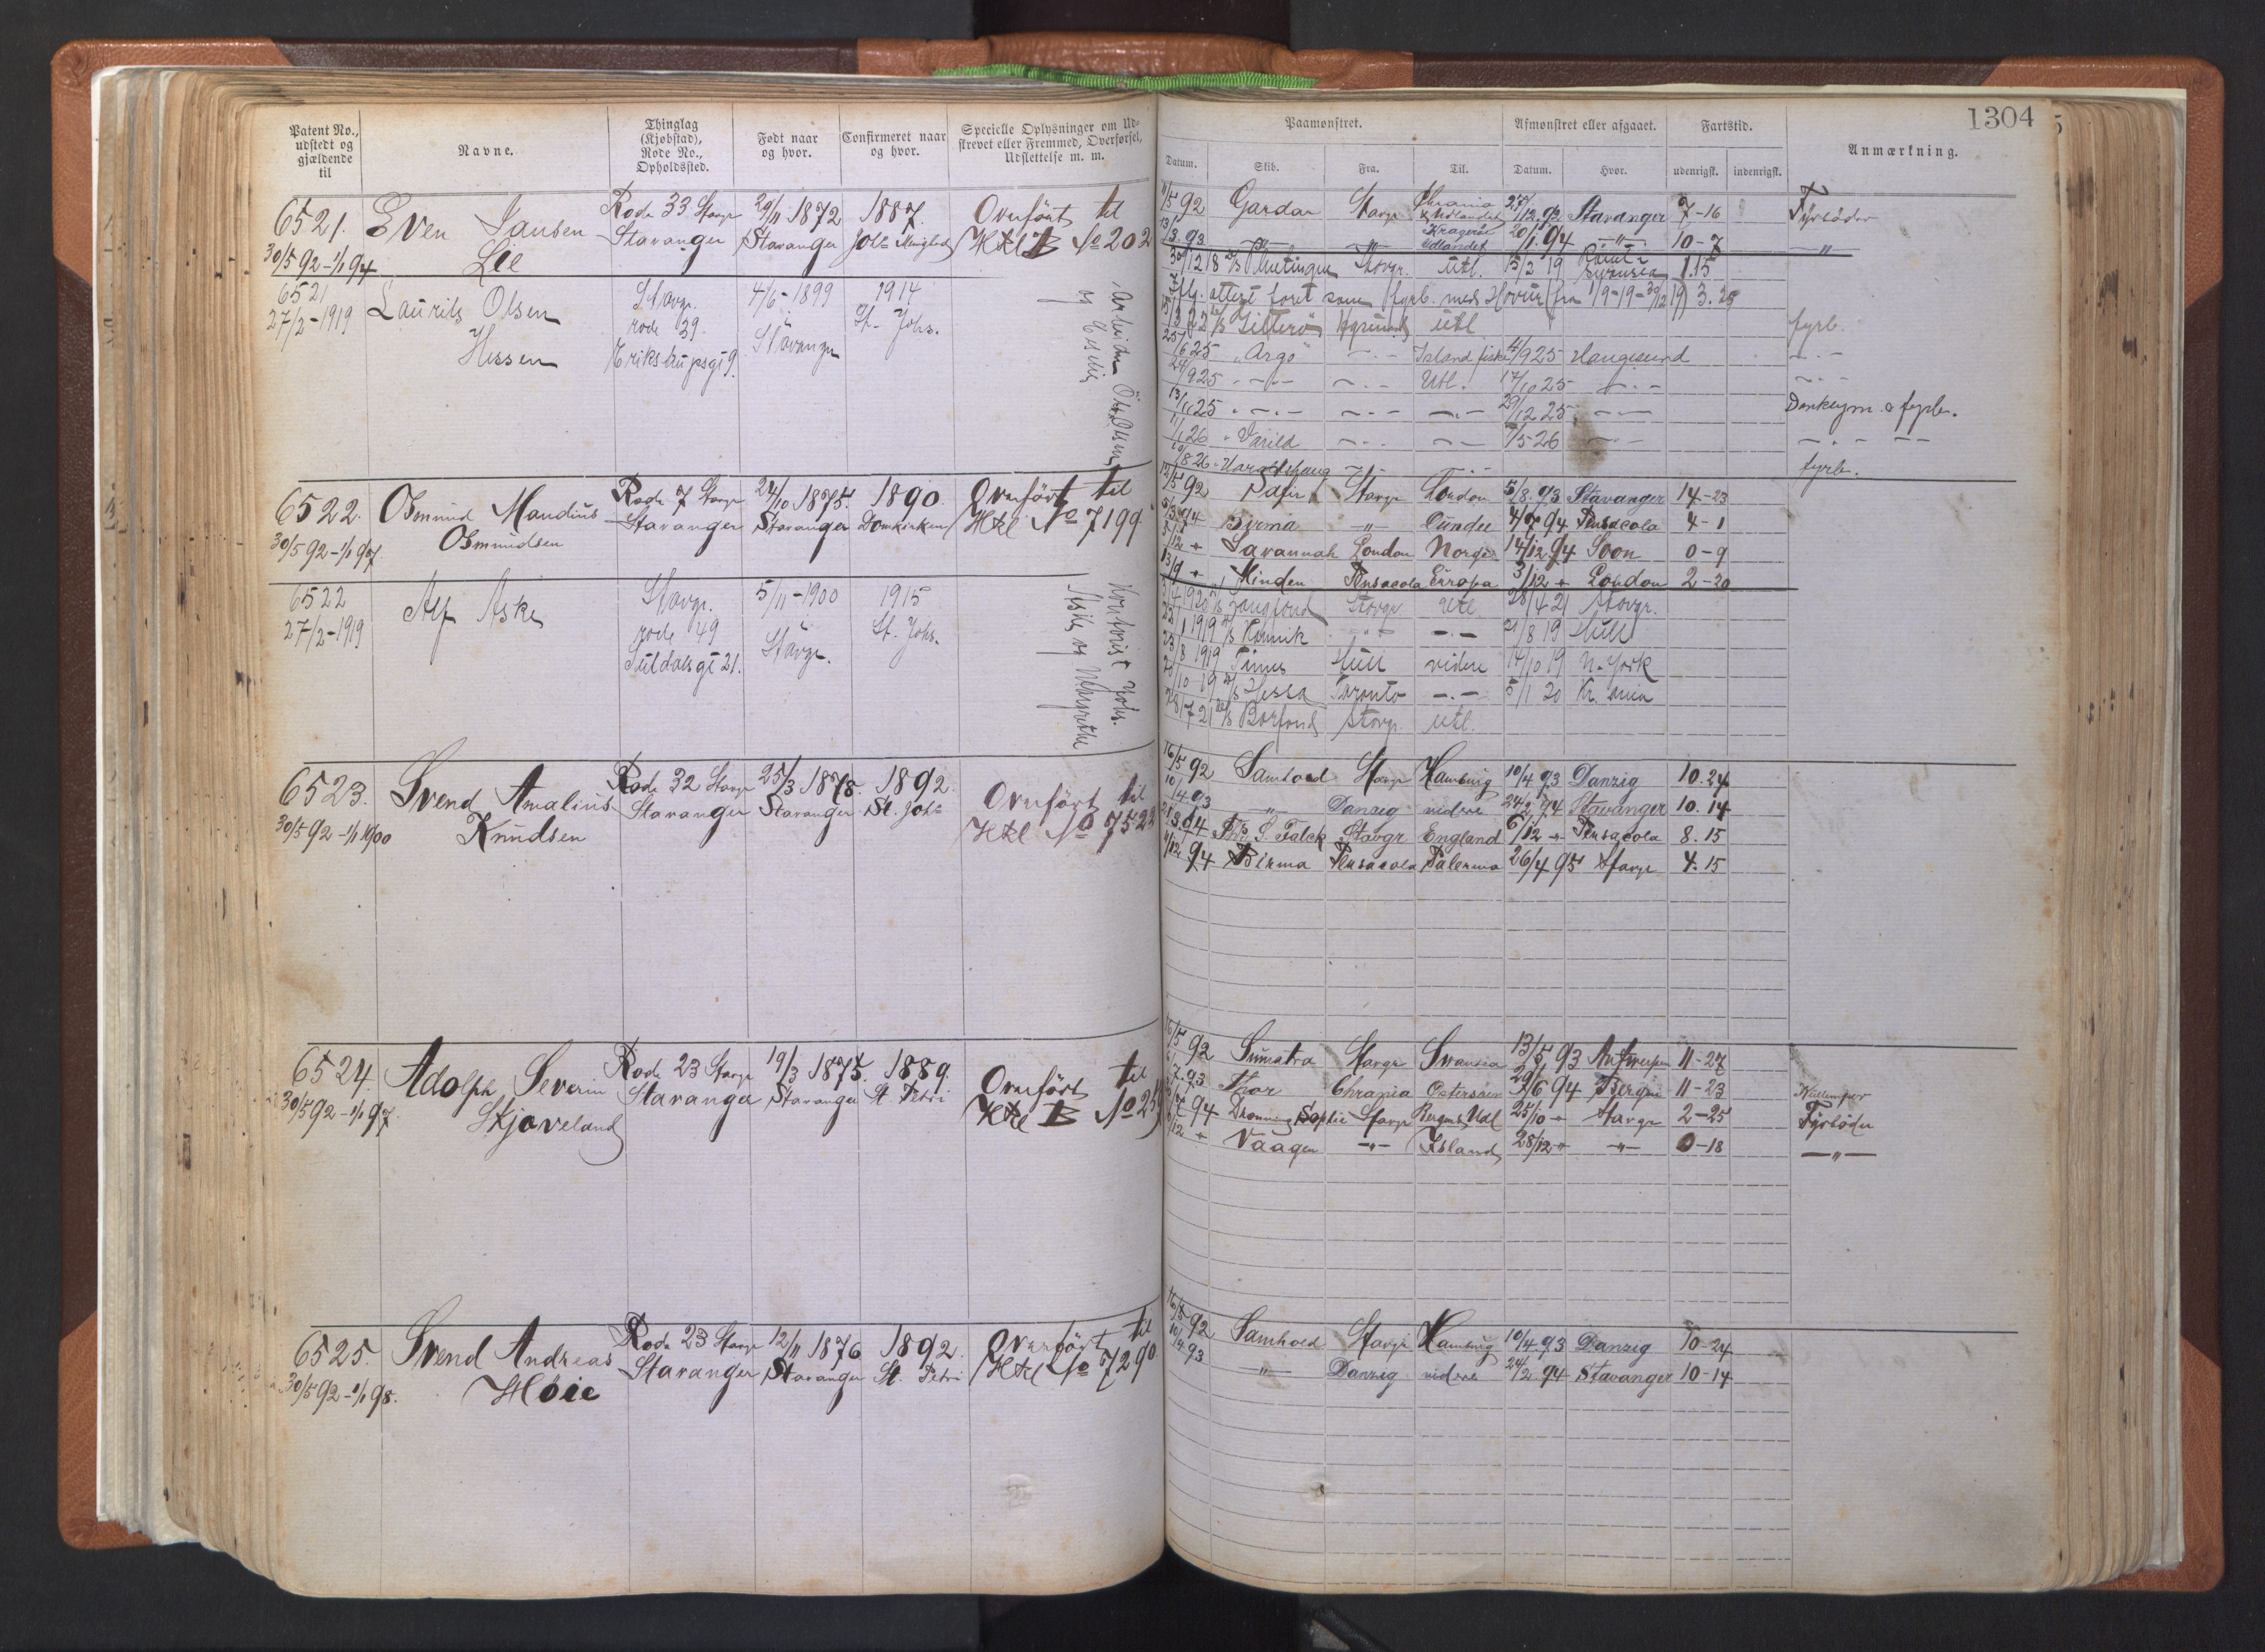 Patent No.,
udstedt og
gjældende
til
Navne.
Thinglag
(Kjøbstad),
Rode No.,
Opholdssted.
Født naar
og hvor.
Confirmeret naar
og hvor.
Specielle Oplysninger om Ud-
skrevet eller Fremmed, Overførsel,
Udslettelse m. m.
6521. Even Jansen Rode 33 Stavgr 29/11 1872 1887. Overført til
30/592-1/1 94 Lie Stavanger Stavanger Joh's Menighed Htl B No 202
6521 Laurits Olsen Stavgr. 4/6-1899 1914
27/2-1919 Hessen rode 39. Stavanger St. Johs.
6522. Osmund Mandius Rode 7 Stavgr 24/10 1875. 1890. Overført til
30/592-1/1 97. Osmundsen Stavanger Stavanger Domkirken Htl No 7199
6522 Alf Aske Stavgr. 5/11-1900 1915
27/2-1919 rode 49 Stavgr. St. Johs.
Suldalsgt 21.
Kontorist Johs.
6523. Svend Amalius Rode 32 Stavgr 25/3 1878. 1892. Overført til
30/592-1/1 1900 Knudsen Stavanger Stavanger St. Joh's Htl No 7522
6524. Adolph Severin Rode 23 Stavgr 19/3 1875. 1889. Overført til
30/592-1/1 97. Skjæveland Stavanger Stavanger St. Petri Htl B No
6525. Svend Andreas Rode 23 Stavgr 12/11 1876 1892. Overført til
30/592-1/1 98. Høie Stavanger Stavanger St. Petri Htl No 7290
1304
Paamønstret.
Afmønstret eller afgaaet.
Fartstid.
Anmærkning.
Datum.
Skib.
Fra.
Til.
Datum.
Hvor.
udenrigsk.
indenrigsk.
11/5 92 Gardar Stavgr Chrania & Udlandet 27/12.92 Stavanger 7-16 Fyrbøder
13/3.93 -"- -"- Kragerø Udlandet 20/1.94 -"- 10-7 -"-
30/12 18 Stavgr. Utl. 15/2 19 1.15
Utl fyrb.
25/6 25 "Argo" Island fiske 4/9 25 Haugesund
24/9 25 Utl. 17/10 25
13/11 25 29/12 25 Donkeym. & fyrb.
11/1 26 7/5 26
fyrb.
12/5 92 Safir Stavgr London 5/8.93 Stavanger 14-23
5/3.94 Birma -"- Dundee 4/7 94 Pensacola 4-1
5/12 " Savannah London Norge 14/12 94 Soon 0-9
13/9 " Minden Pensacola Europa 3/12 " London 2-20
Stavgr. Utl. 28/4 21 Stavgr.
22/1 1919 21/8 19 Hull
23/8 1919 Times Hull videre 14/10 19 N. York
20/10 19 Hessa Toronto 5/1 20 Kr.ania
Borfond Stavgr. Utl.
16/5 92 Samhold Stavgr Hamburg 10/4 93 Danzig 10.24
10/4 93 -"- Danzig videre 24/2 94 Stavanger 10.14
Ths. S. Falck Stavgr England 6/12 " Pensacola 8.15
94 Birma Pensacola Palermo 26/4 95 Stavgr 4.15
16/5 92 Sumatra Stavgr Swansea 13/5 93 Antwerpen 11-27
Thor Chrania Østersøen 29/6 94 Bergen 11-23
94 Dronning Sophie Stavgr Udl 25/10 " Stavgr 2-25 Fyrbøder
12 " Vaagen -"- Island 28/12 " -"- 0-18 -"-
16/5 92 Samhold Stavgr Hamburg 10/4 93 Danzig 10-24
10/4 93 -"- Danzig videre 24/2.94 Stavanger 10-14